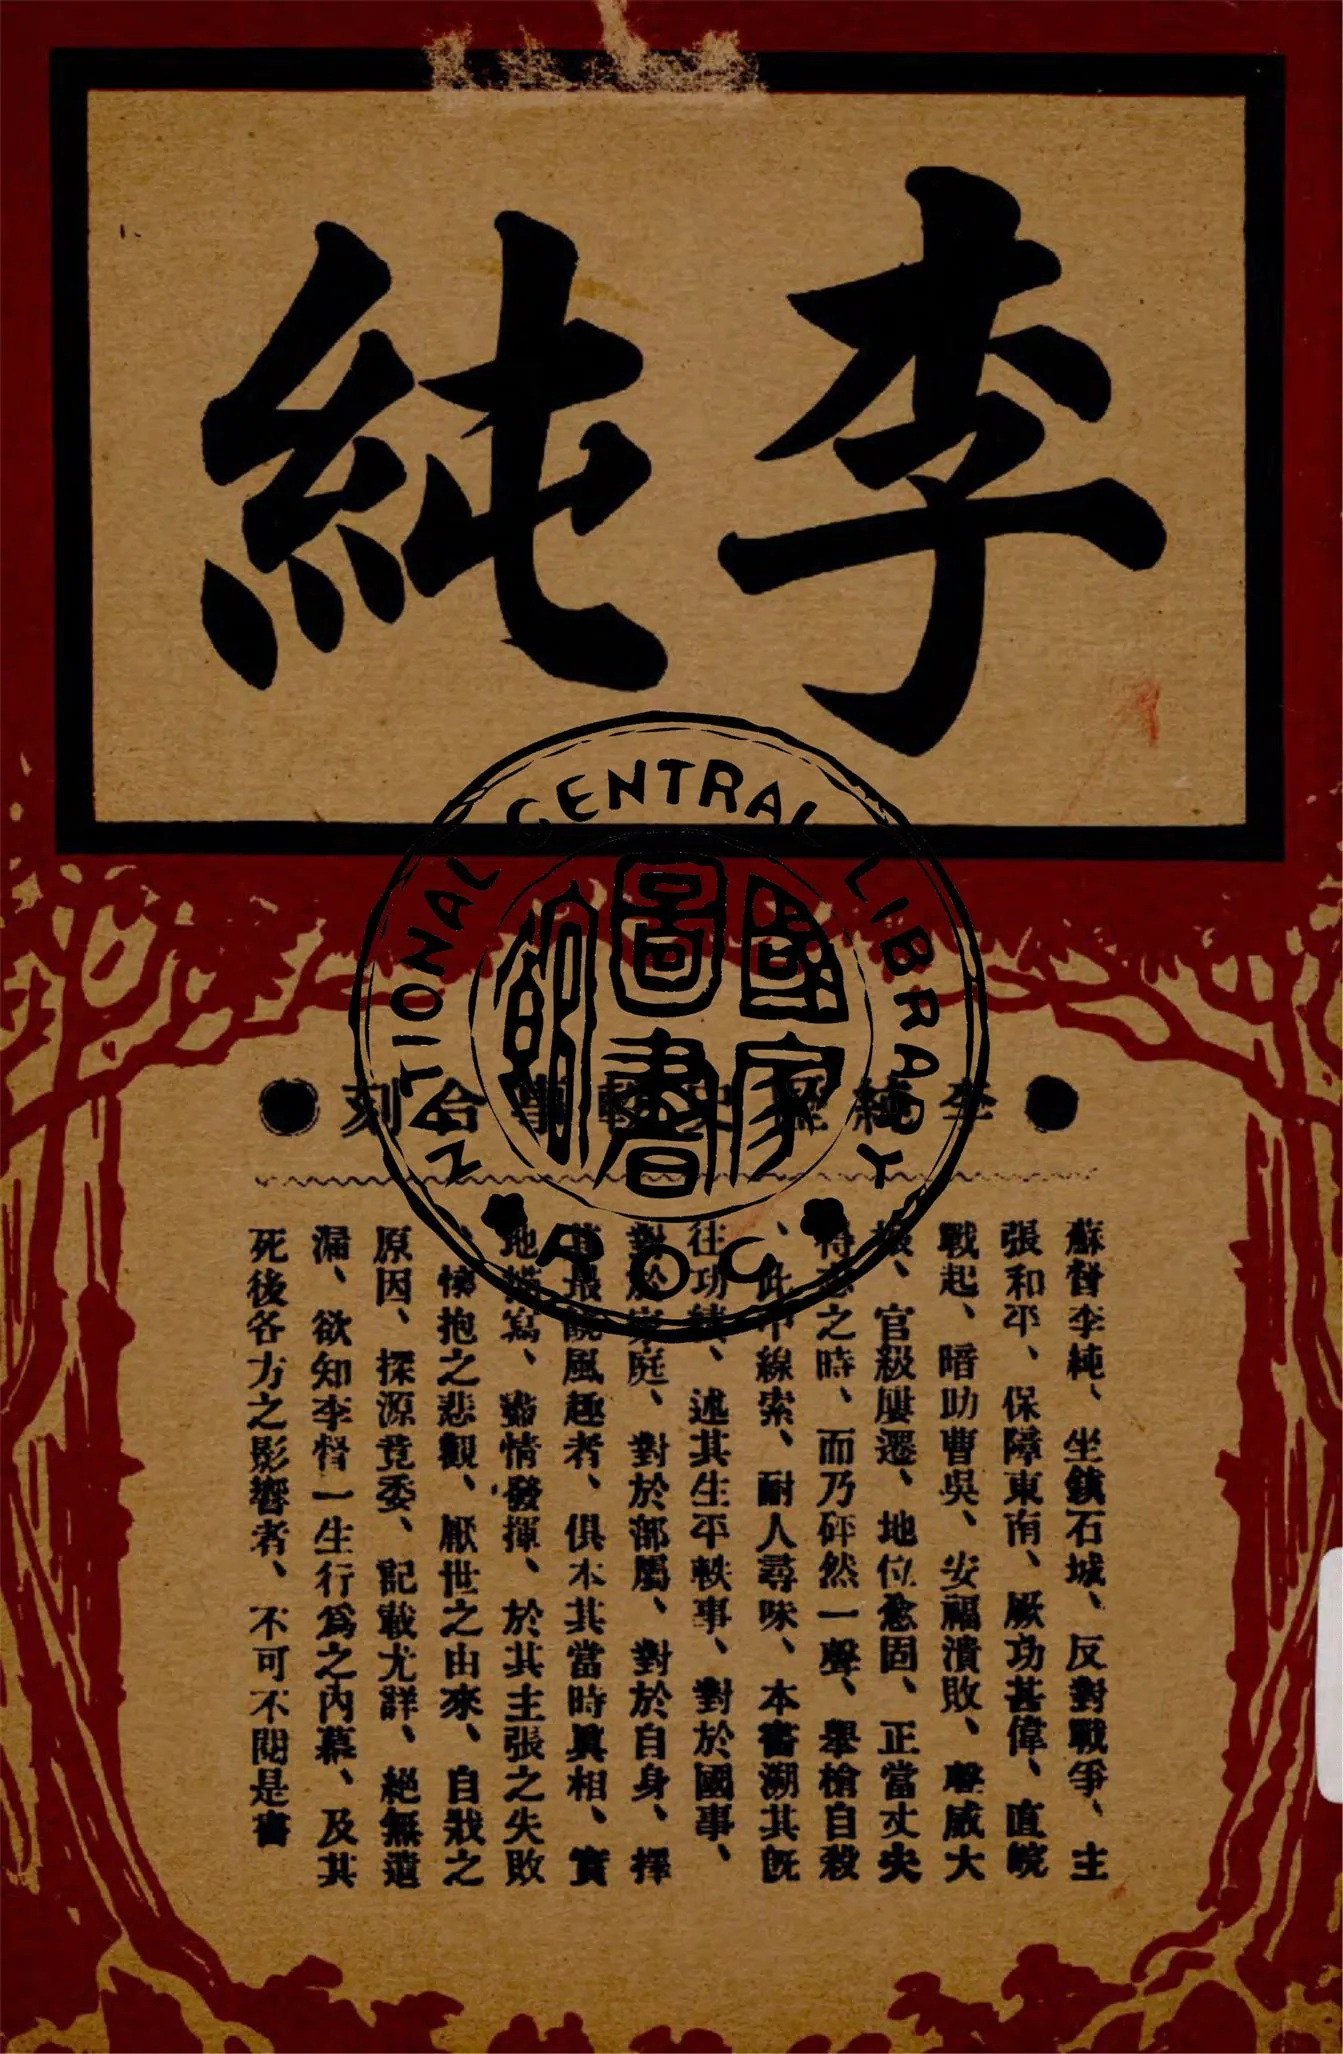 李純
●李純歷史軼事合刻●
蘇督李純、坐鎮石城、反對戰爭、主
張和平、保障東南、厥功甚偉、直皖
戰起、暗助曹吳、安福潰敗、聲威大
振、官級屢遷、地位愈固、正當丈夫
得意之時、而乃砰然一聲、舉槍自殺
、此中線索、耐人尋味、本書溯其既
往功績、述其生平軼事、對於國事、
對於家庭、對於部屬、對於自身、擇
其最饒風趣者、俱本其當時眞相、實
地描寫、盡情發揮、於其主張之失敗
、懷抱之悲觀、厭世之由來、自戕之
原因、探源竟委、記載尤詳、絕無遺
漏、欲知李督一生行爲之內幕、及其
死後各方之影響者、不可不閱是書
NATIONAL CENTRAL LIBRARY
國家圖書館
ROC